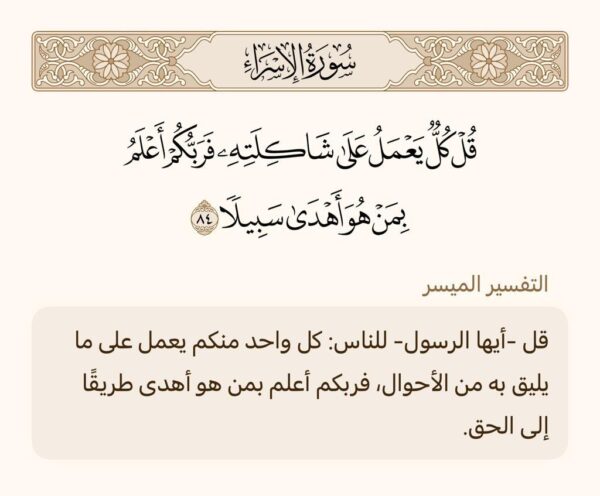 سُورَةُ الإِسْرَاءِ
قُلۡ كُلّٞ يَعۡمَلُ عَلَىٰ شَاكِلَتِهِۦ فَرَبُّكُمۡ أَعۡلَمُ
بِمَنۡ هُوَ أَهۡدَىٰ سَبِيلٗا ٨٤
التفسير الميسر
قل -أيها الرسول- للناس: كل واحد منكم يعمل على ما
يليق به من الأحوال، فربكم أعلم بمن هو أهدى طريقًا
إلى الحق.